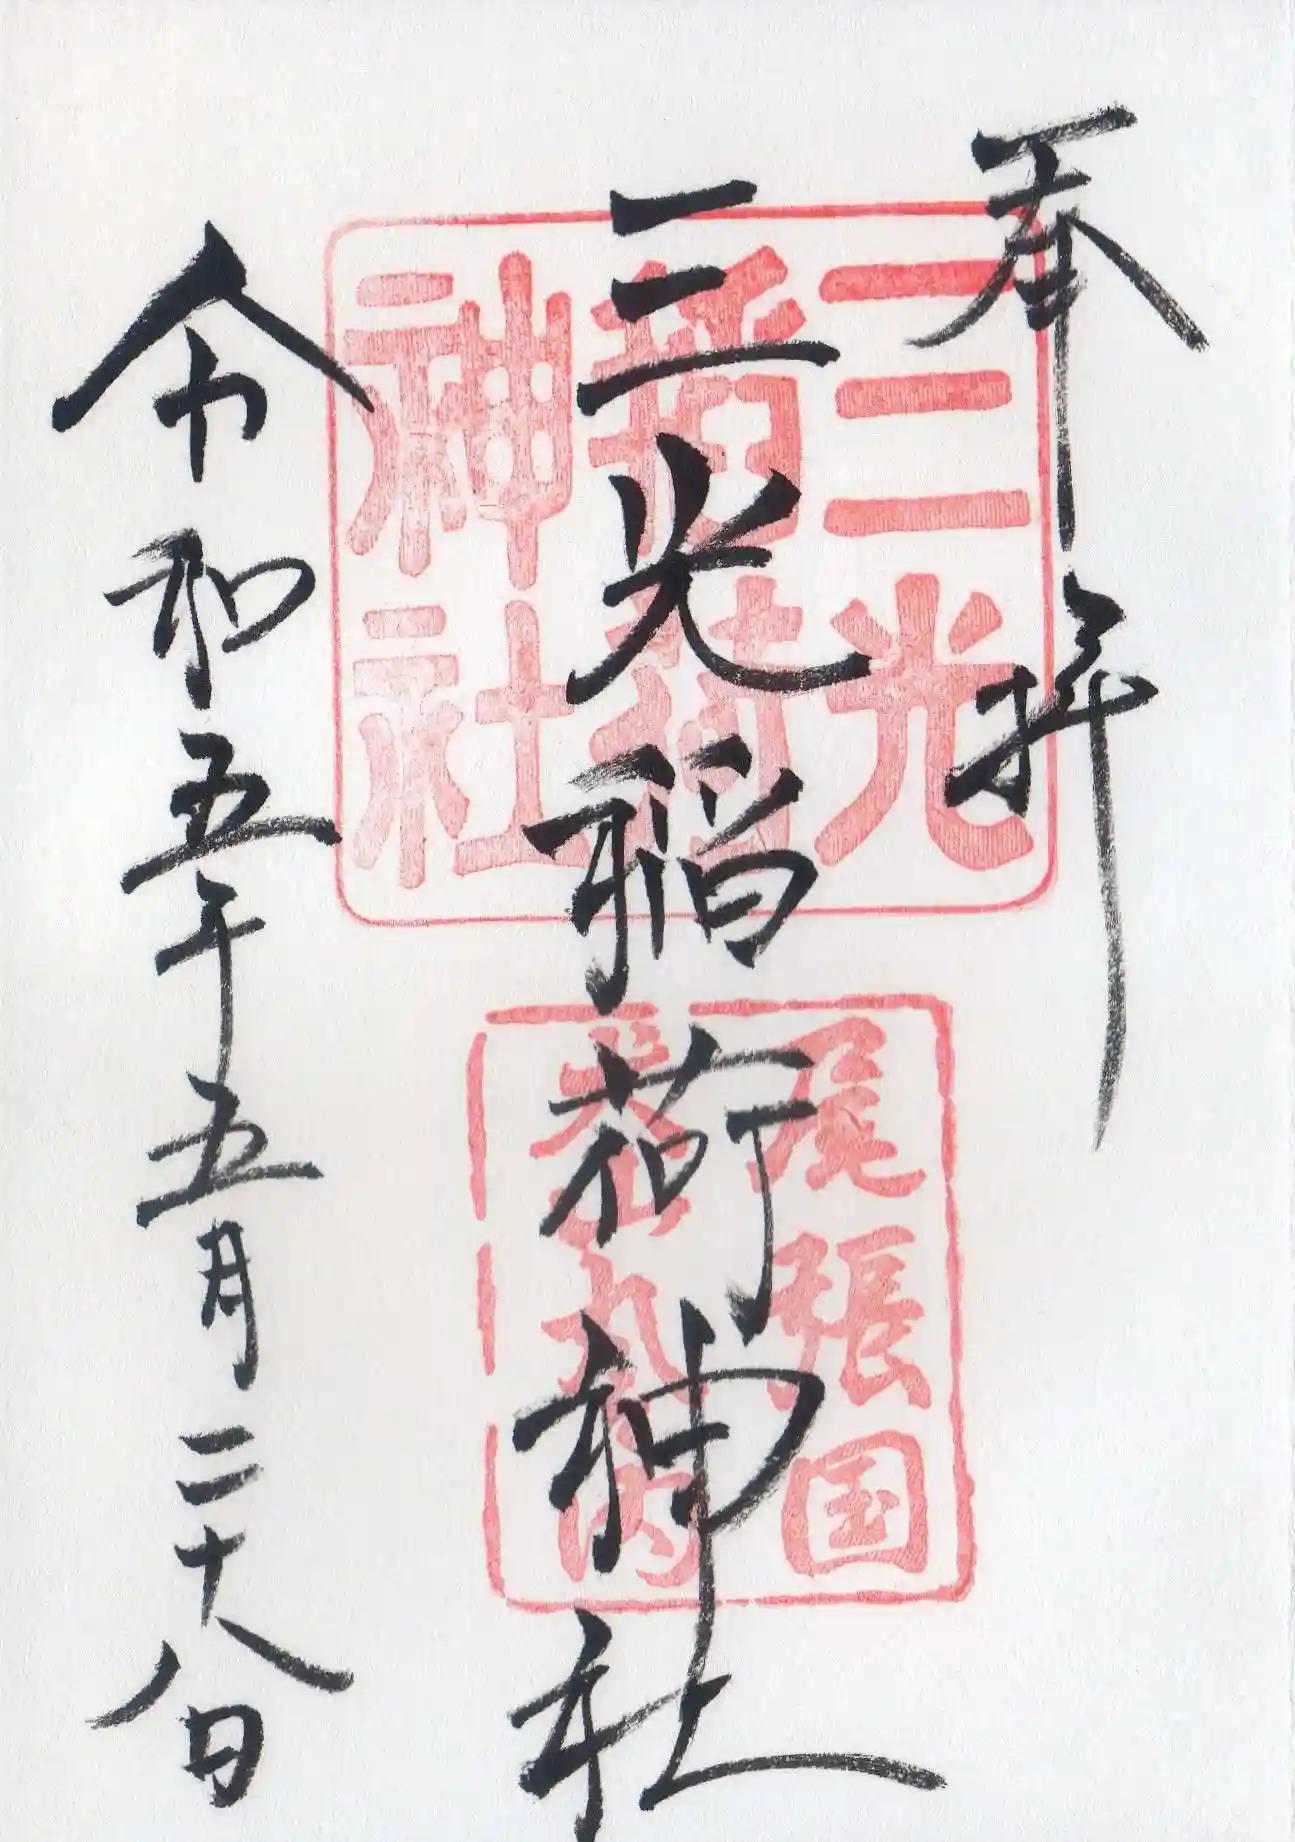 奉拝
三光稲荷神社
令和五年五月二十八日
三光
稲荷
神社
尾張国
犬山丸の内